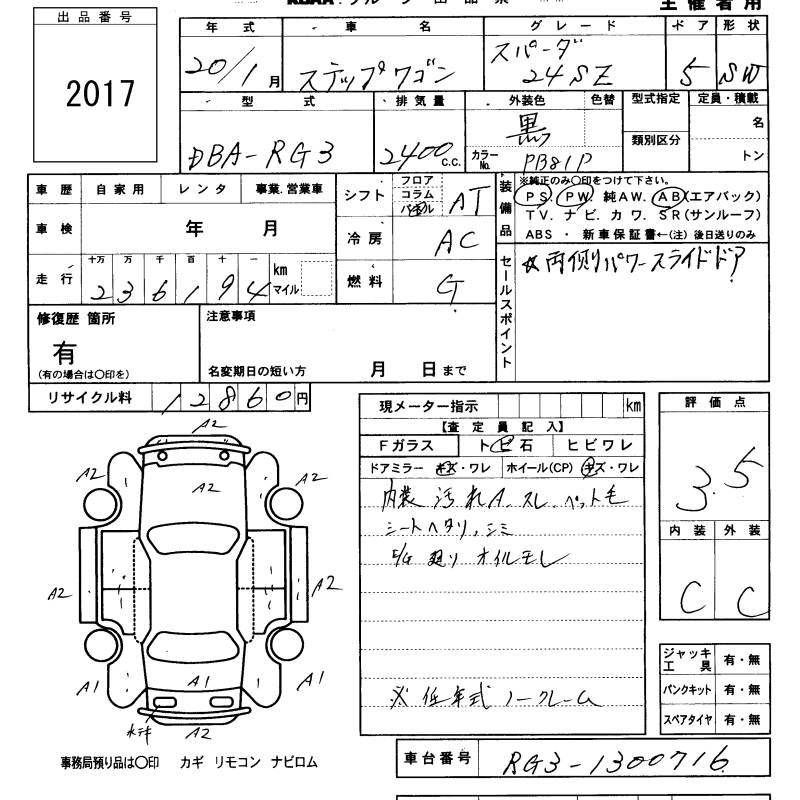 出品番号
2017
主催者用
年式 車名 グレード ドア 形状
20/1月 ステップワゴン スパーダ 24SZ 5 SW
型式 排気量 外装色 色替 型式指定 定員・積載
DBA-RG3 2400c.c. 黒 カラーNo. PB81P 類別区分 名 トン
車歴 自家用 レンタ 事業.営業車
車検 年 月
走行 十万 万 千 百 十 一 km マイル
236194
シフト フロア コラム パネル AT
冷房 AC
燃料 G
装備品
※純正のみ○印をつけて下さい。
PS. PW. 純AW. AB(エアバック)
TV. ナビ. カワ. SR(サンルーフ)
ABS ・ 新車保証書←(注) 後日送りのみ
セールスポイント
☆両側パワースライドドア
修復歴 箇所
有
(有の場合は○印を)
注意事項
名変期日の短い方 月 日まで
リサイクル料 12860円
現メーター指示 km
【査定員記入】
Fガラス トビ石 ヒビワレ
ドアミラー キズ・ワレ ホイール(CP) キズ・ワレ
内装 汚れA. スレ. ペット毛
シートヘタリ, シミ
E/G 廻り オイルモレ
※ 低年式 ノークレーム
評価点
3.5
内装 外装
C C
ジャッキ工具 有・無
パンクキット 有・無
スペアタイヤ 有・無
A2
A2 A2 A2
A2 A2
A1 A1 A1
A2
事務局預り品は○印 カギ リモコン ナビロム
車台番号 RG3-1300716